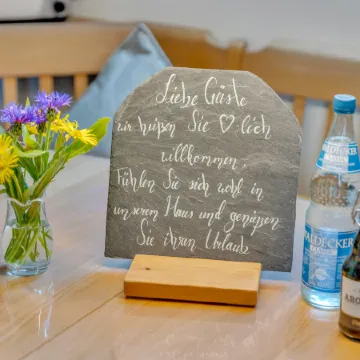 Liebe Gäste
wir heißen Sie ♡lich
willkommen.
Fühlen Sie sich wohl in
unserem Haus und genießen
Sie ihren Urlaub
WALDECKER